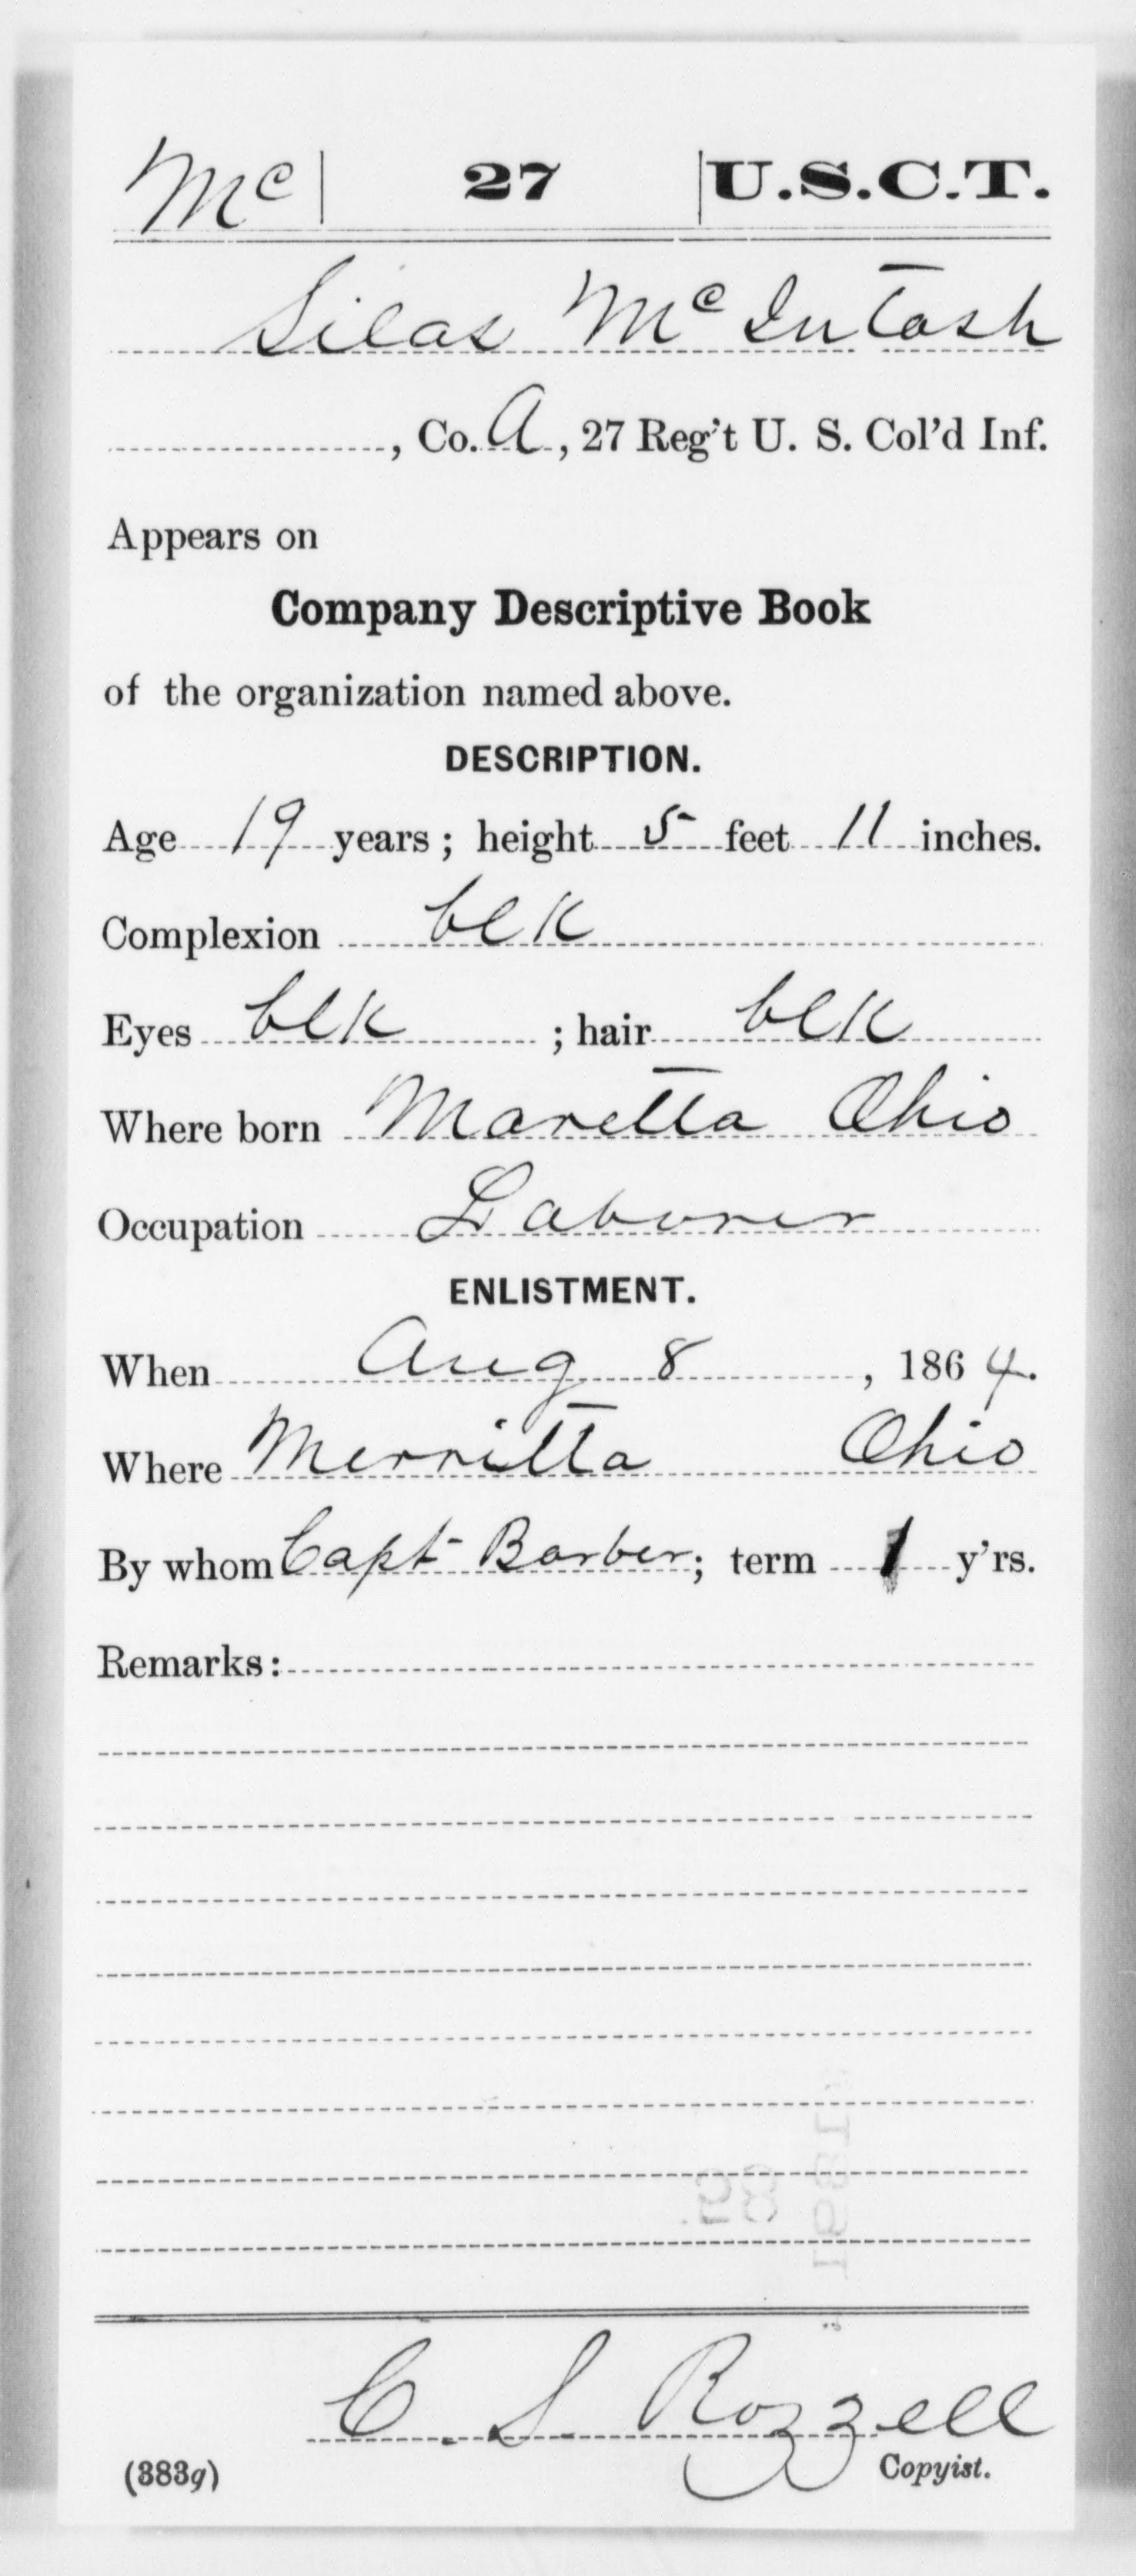 Mc 27 U.S.C.T.
Silas McIntosh
, Co. A, 27 Reg't U. S. Col'd Inf.
Appears on
Company Descriptive Book
of the organization named above.
DESCRIPTION.
Age 19 years; height 5 feet 11 inches.
Complexion blk
Eyes blk; hair blk
Where born Maretta Ohio
Occupation Laborer
ENLISTMENT.
When Aug 8, 1864.
Where Merritta Ohio
By whom Capt Barber; term 1 y'rs.
Remarks:
C. S. Rozzell
(383g) Copyist.